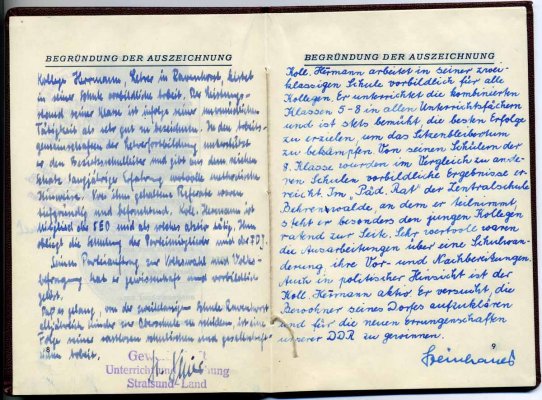 BEGRÜNDUNG DER AUSZEICHNUNG
Kollege Herrmann, Lehrer in Ravenhorst, leistet
in seiner Schule vorbildliche Arbeit. Der Leistungs-
stand seiner Klasse ist infolge seiner unermüdlichen
Tätigkeit als sehr gut zu bezeichnen. In den Arbeits-
gemeinschaften der Lehrerfortbildung unterstützt
er den Bezirksschulleiter und gibt aus dem reichen
Schatz langjähriger Erfahrung wertvolle methodische
Hinweise. Von ihm gehaltene Referate waren
tiefgründig und befruchtend. Koll. Herrmann ist
Mitglied der SED und als solches aktiv tätig. Ihm
obliegt die Schulung der Parteimitglieder und der FDJ.
Seinen Parteiauftrag zur Volkswahl und Volks-
befragung hat er gewissenhaft und vorbildlich
gelöst.
Daß es gelang, von der zweiklassigen Schule Ravenhorst
alljährlich Kinder zur Oberschule zu melden, ist eine
Folge seiner wertvollen schulischen und gesellschaft-
lichen Arbeit.
8
Unterrichtung
Stralsund-Land
BEGRÜNDUNG DER AUSZEICHNUNG
Koll. Hermann arbeitet in seiner zwei-
klassigen Schule vorbildlich für alle
Kollegen. Er unterrichtet die kombinierten
Klassen 5-8 in allen Unterrichtsfächern
und ist stets bemüht die besten Erfolge
zu erzielen, um das Sitzenbleibertum
zu bekämpfen. Von seinen Schülern der
8. Klasse wurden im Vergleich zu ande-
ren Schulen vorbildliche Ergebnisse er-
reicht. Im "Päd. Rat" der Zentralschule
Behrenwalde, an dem er teilnimmt,
steht er besonders den jungen Kollegen
ratend zur Seite. Sehr wertvoll waren
die Ausarbeitungen über eine Schulwan-
derung, ihre Vor- und Nachbereitungen.
Auch in politischer Hinsicht ist der
Koll. Hermann aktiv. Er versucht, die
Bewohner seines Dorfes aufzuklären
und für die neuen Errungenschaften
unserer DDR zu gewinnen.
9